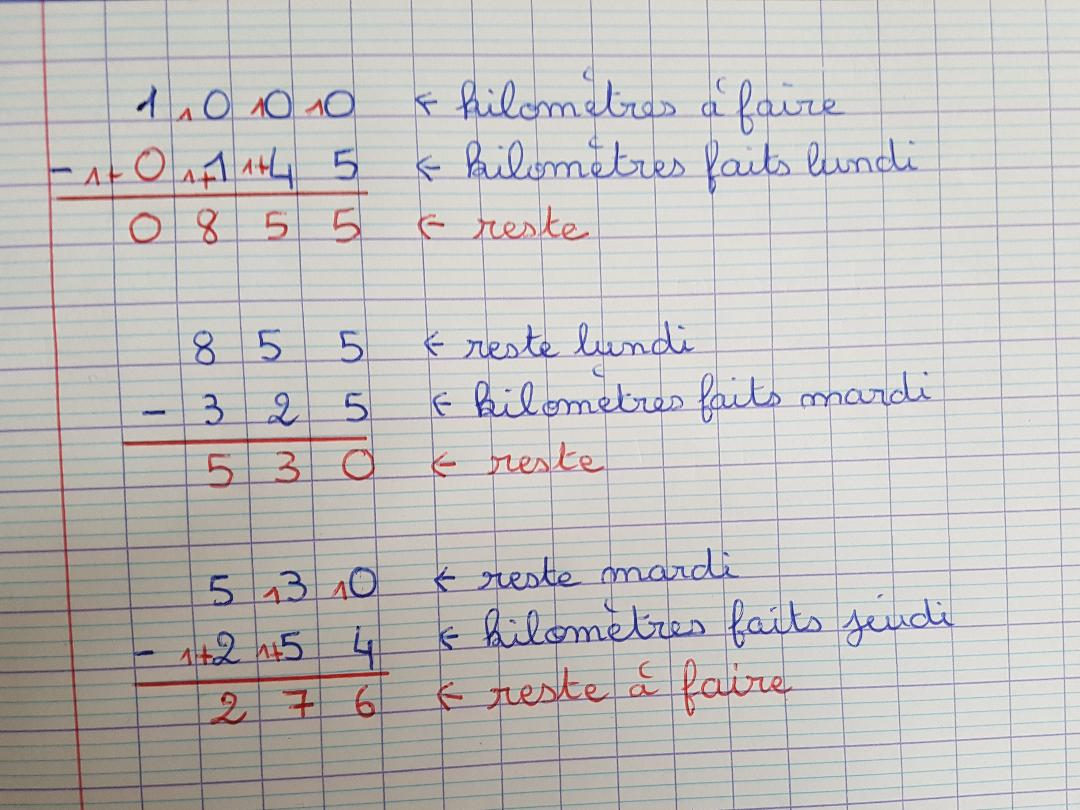 1 10 10 10 ← kilomètres à faire
- 1+0 1+1 1+4 5 ← kilomètres faits lundi
0 8 5 5 ← reste
8 5 5 ← reste lundi
- 3 2 5 ← kilomètres faits mardi
5 3 0 ← reste
5 13 10 ← reste mardi
- 1+2 1+5 4 ← kilomètres faits jeudi
2 7 6 ← reste à faire